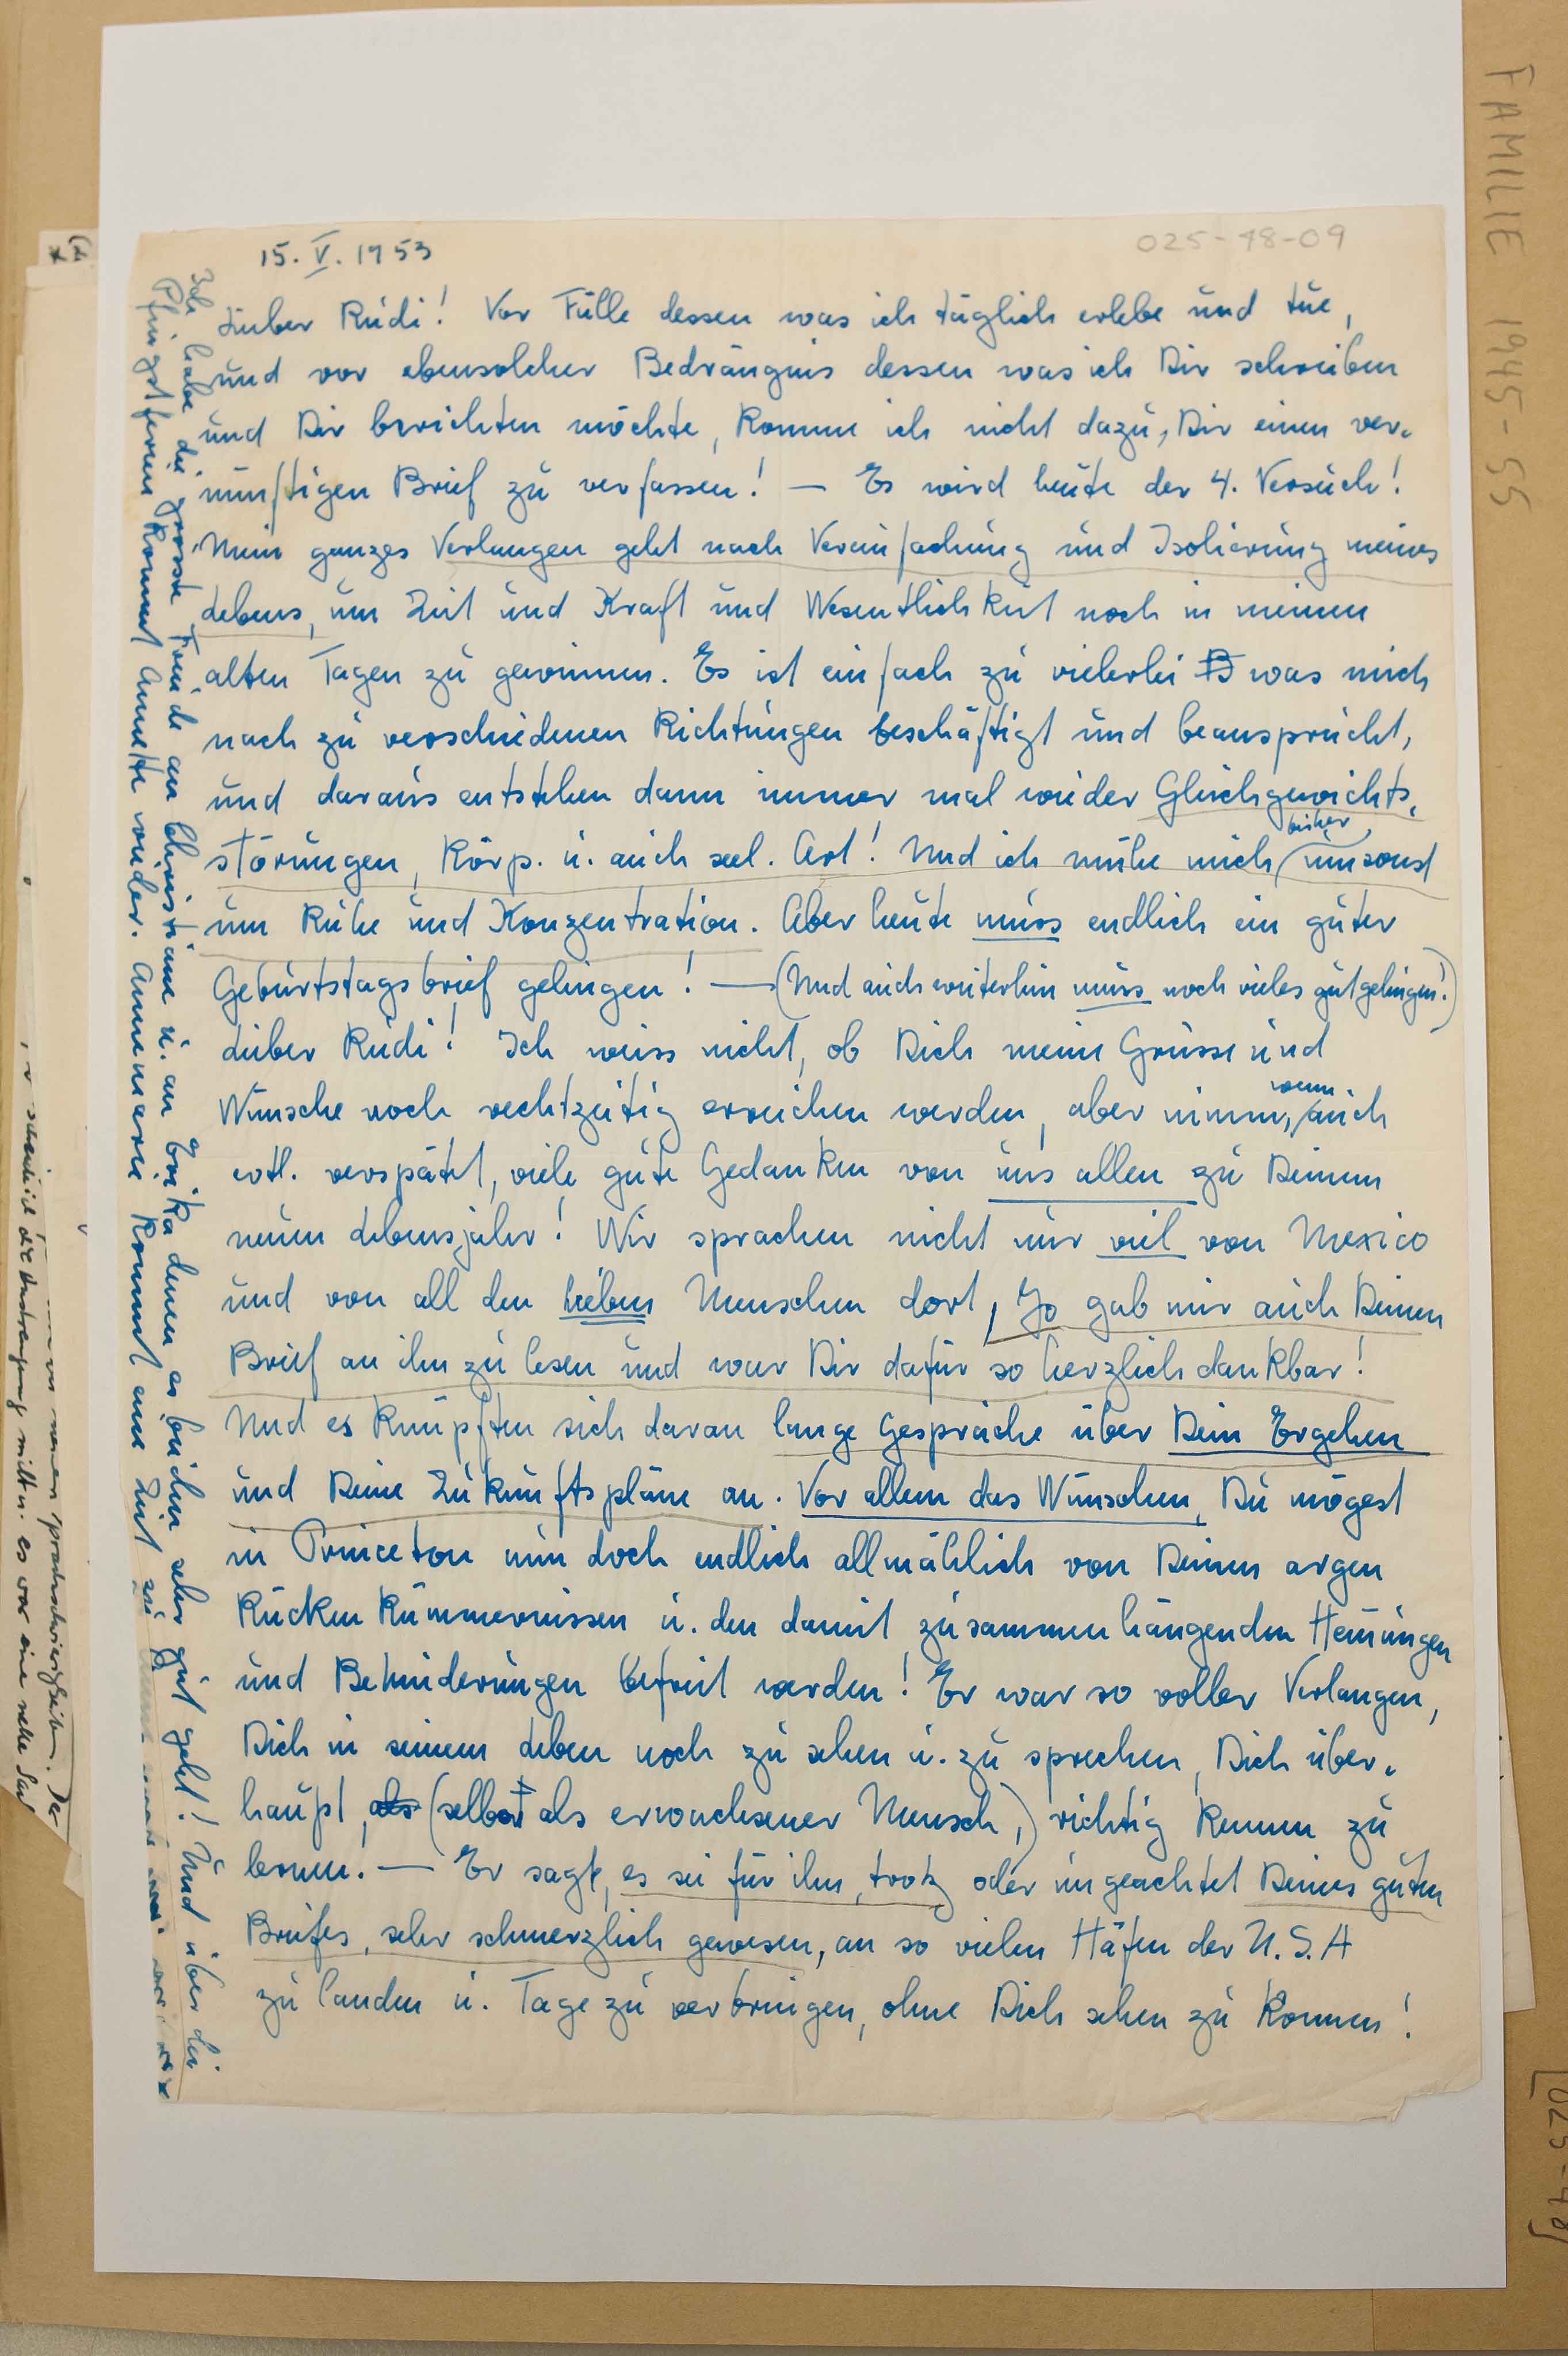 FAMILIE 1945-55
025-48-09
15. V. 1953
Lieber Rudi! Vor Fülle dessen was ich täglich erlebe und tue,
und vor ebensolcher Bedrängnis dessen was ich Dir schreiben
und Dir berichten möchte, komme ich nicht dazu, Dir einen ver-
nünftigen Brief zu verfassen! — Es wird heute der 4. Versuch!
Mein ganzes Verlangen geht nach Vereinfachung und Isolierung meines
Lebens, um Zeit und Kraft und Wesentlichkeit noch in meinen
alten Tagen zu gewinnen. Es ist einfach zu vielerlei was mich
nach zu verschiedenen Richtungen beschäftigt und beansprucht,
und daraus entstehen dann immer mal wieder Gleichgewichts-
störungen, körp. u. auch seel. Art! Und ich mühe mich bisher umsonst
um Ruhe und Konzentration. Aber heute muss endlich ein guter
Geburtstagsbrief gelingen! — (Und auch weiterhin muss noch vieles gut gelingen!)
Lieber Rudi! Ich weiss nicht, ob Dich meine Grüsse und
Wünsche noch rechtzeitig erreichen werden, aber nimm, wenn auch
evtl. verspätet, viele gute Gedanken von uns allen zu Deinem
neuen Lebensjahr! Wir sprachen nicht nur viel von Mexico
und von all den lieben Menschen dort, Jo gab mir auch Deinen
Brief an ihn zu lesen und war Dir dafür so herzlich dankbar!
Und es knüpften sich daran lange Gespräche über Dein Ergehen
und Deine Zukunftspläne an. Vor allem das Wünschen, Du mögest
in Princeton nun doch endlich allmählich von Deinen argen
Rücken Kümmernissen u. den damit zusammenhängenden Hemungen
und Behinderungen befreit werden! Er war so voller Verlangen,
Dich in seinem Leben noch zu sehen u. zu sprechen, Dich über-
haupt, als (selbst als erwachsener Mensch,) richtig kennen zu
lernen. — Er sagt, es sei für ihn, trotz oder ungeachtet Deines guten
Briefes, sehr schmerzlich gewesen, an so vielen Häfen der U.S.A
zu landen u. Tage zu verbringen, ohne Dich sehen zu können!
Ich habe die grosste Freude an Christiane u. an Erika denen es beiden sehr gut geht! Und über die
Pfingstferien kommt Annette wieder. Annemarie kommt eine Zeit zu
025-48